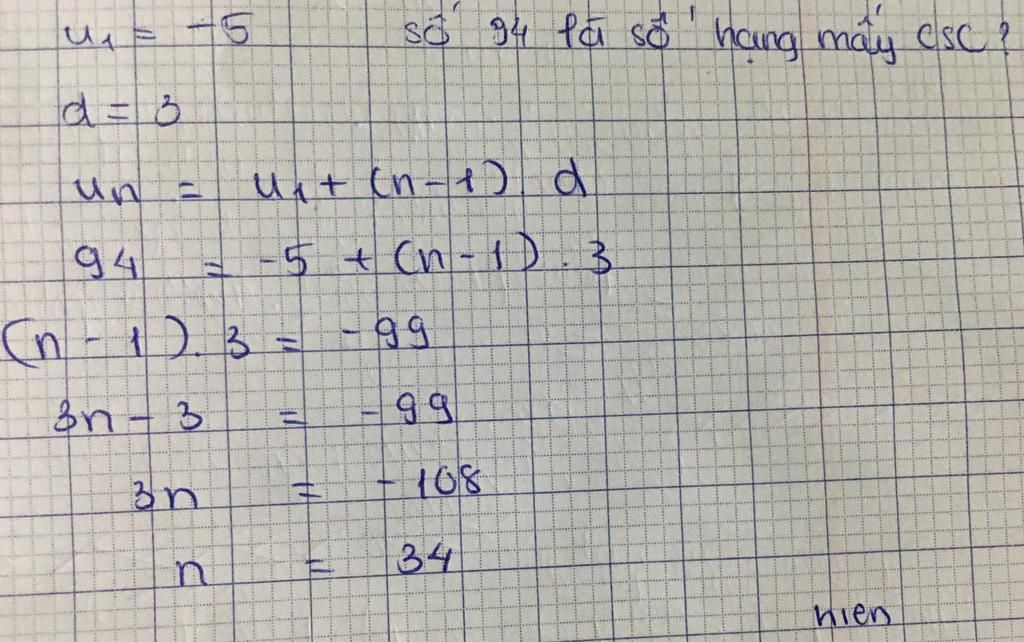 u1 = -5 số 94 là số hạng mấy CSC?
d = 3
un = u1 + (n-1) d
94 = -5 + (n-1) . 3
(n-1). 3 = -99
3n - 3 = -99
3n = -108
n = 34
nien